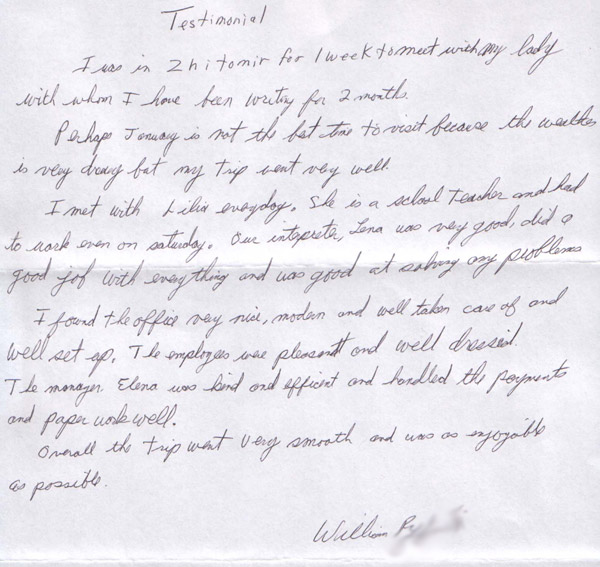 Testimonial
I was in Zhitomir for 1 week to meet with my lady
with whom I have been writing for 2 months.
Perhaps January is not the best time to visit because the weather
is very dreary but my trip went very well.
I met with Lilia everyday. She is a school teacher and had
to work even on saturday. Our interpreter, Lena was very good, did a
good job with everything and was good at solving any problems
I found the office very nice, modern and well taken care of and
well set up. The employees were pleasant and well dressed.
The manager Elena was kind and efficient and handled the payments
and paper work well.
Overall the trip went very smooth and was as enjoyable
as possible.
William